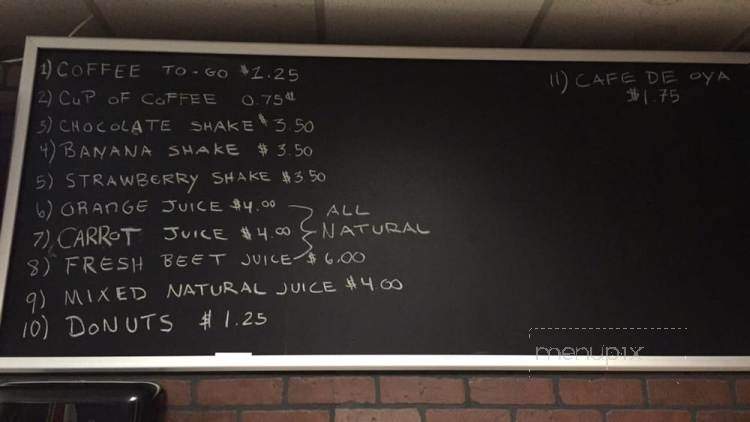 1) COFFEE TO-GO $1.25
2) CUP OF COFFEE 0.75¢
3) CHOCOLATE SHAKE $3.50
4) BANANA SHAKE $3.50
5) STRAWBERRY SHAKE $3.50
6) ORANGE JUICE $4.00
7) CARROT JUICE $4.00
8) FRESH BEET JUICE $6.00
ALL
NATURAL
9) MIXED NATURAL JUICE $4.00
10) DONUTS $1.25
11) CAFE DE OYA
$1.75
menupix